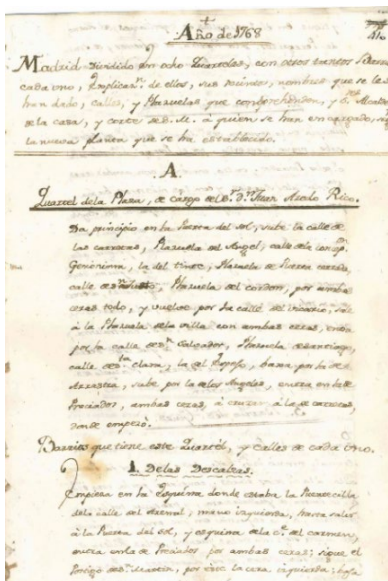 Año de 1768
Madrid Dividido en ocho Quarteles, con otros tantos
cada uno, Explicaz.n de ellos, sus nombres que se les
han dado, calles, y Plazuelas que comprehenden, y Alcaldes
de la casa, y corte de S. M. a quien se han encargado,
la nueva planta que se ha establecido.
A.
Quartel dela Plaza, de cargo de S.r D.n Juan Acedo Rico.
Da principio en la Puerta del sol, sube la calle de
las carretas, Plazuela del Angel, calle dela
Geronima, la del Plazuela de Puerta cerrada,
calle Plazuela del cordon, por ambas
ceras todo, y vuelve por la calle del sale
à la Plazuela dela villa con ambas ceras, entra
por la calle de S.n Salvador, Plazuela de Santiago,
calle de S.ta clara, la del Espejo, baxa por la de
Arrastra, sube por la delos Angeles, entra en la de
Preciados, ambas ceras, à cruzar à la de carretas,
donde empezó.
Barrios que tiene este Quartél, y calles de cada uno.
1. Delas Descalzas.
Empieza en la Esquina donde estaba la
dela calle del Arenal, mano izquierda, hasta salir
à la Puerta del sol, y esquina dela c.e del carmen,
entra en la de Preciados por ambas ceras; sigue el
Postigo de S.n Martin, por la cera izquierda; baja